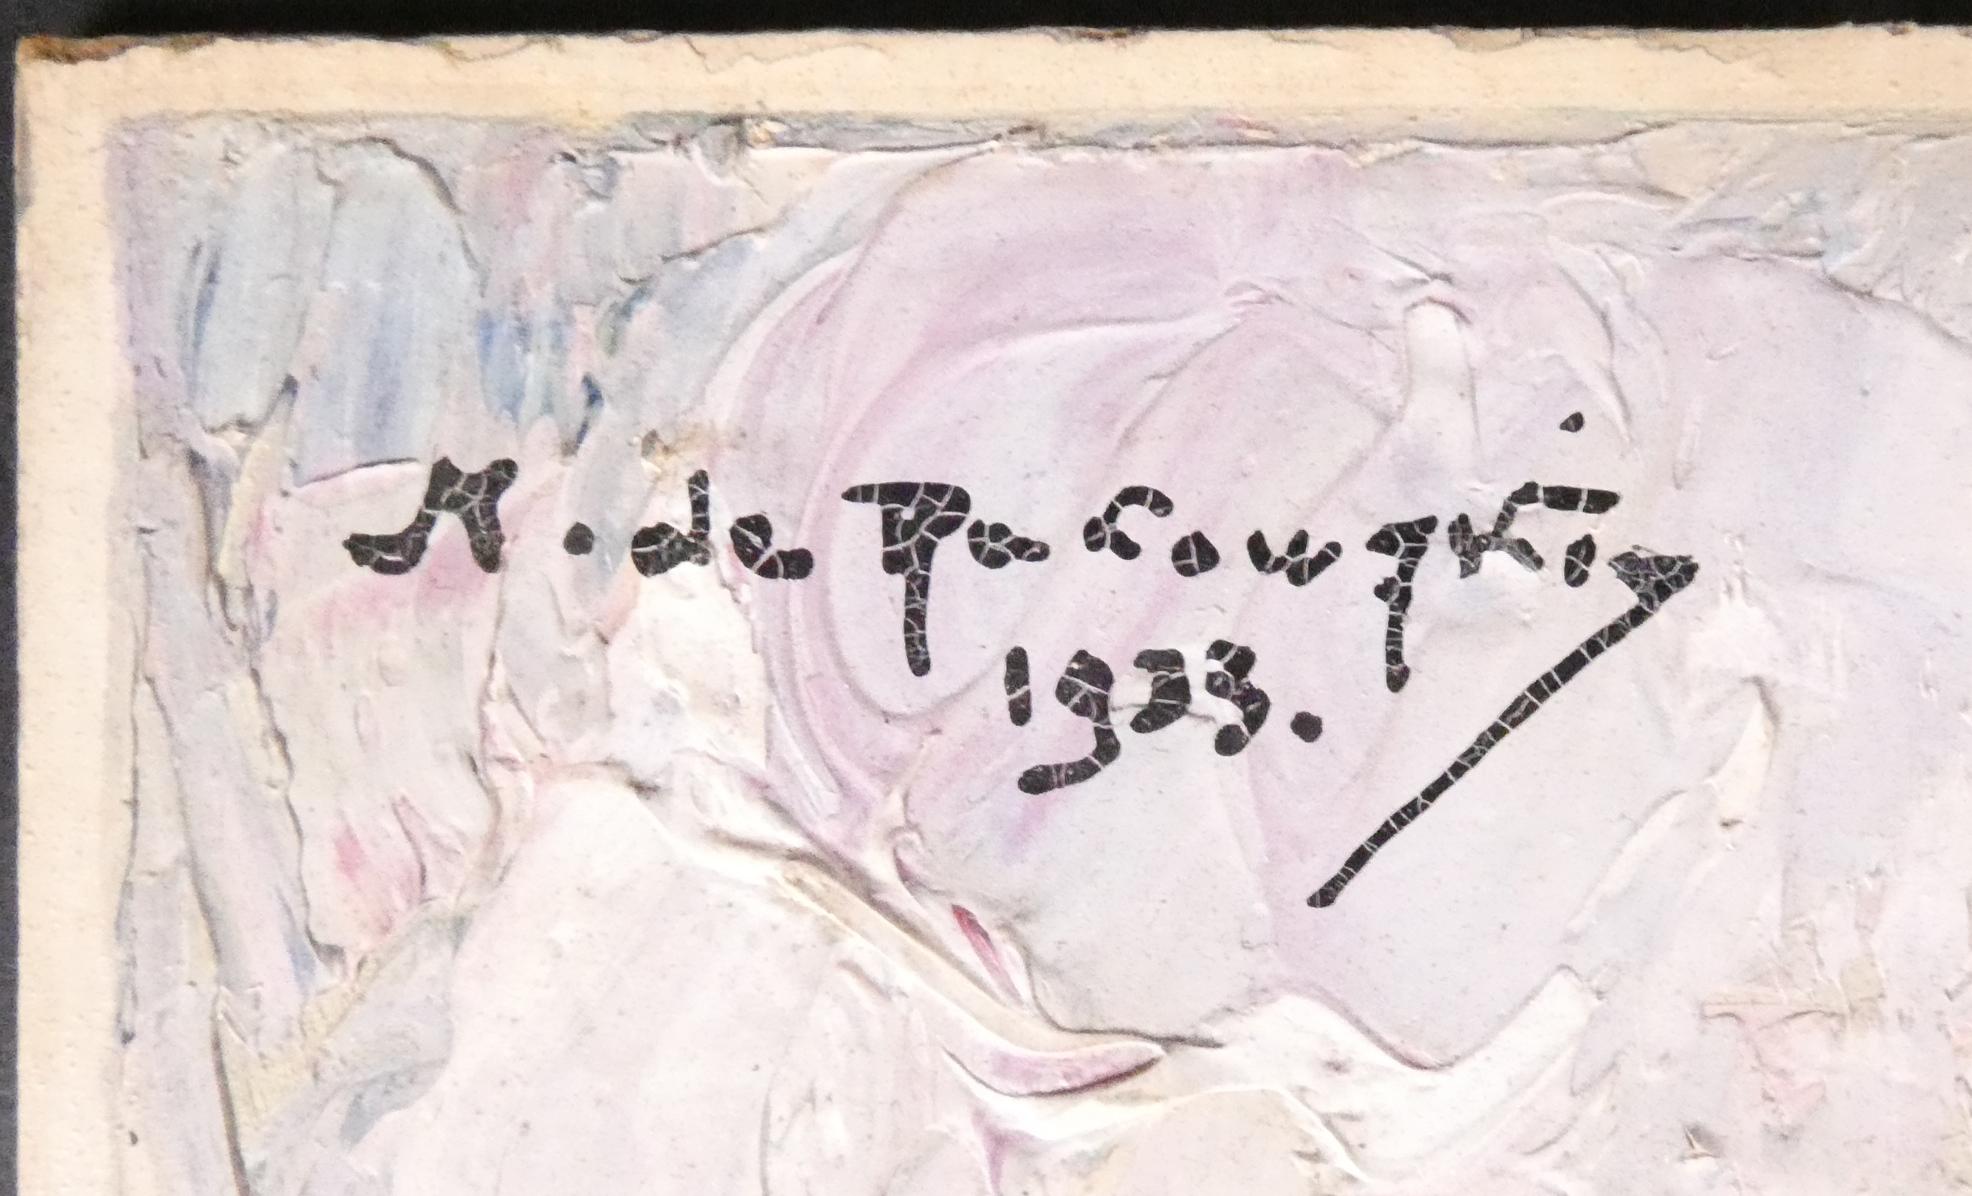 M. de Pacowski
1933.